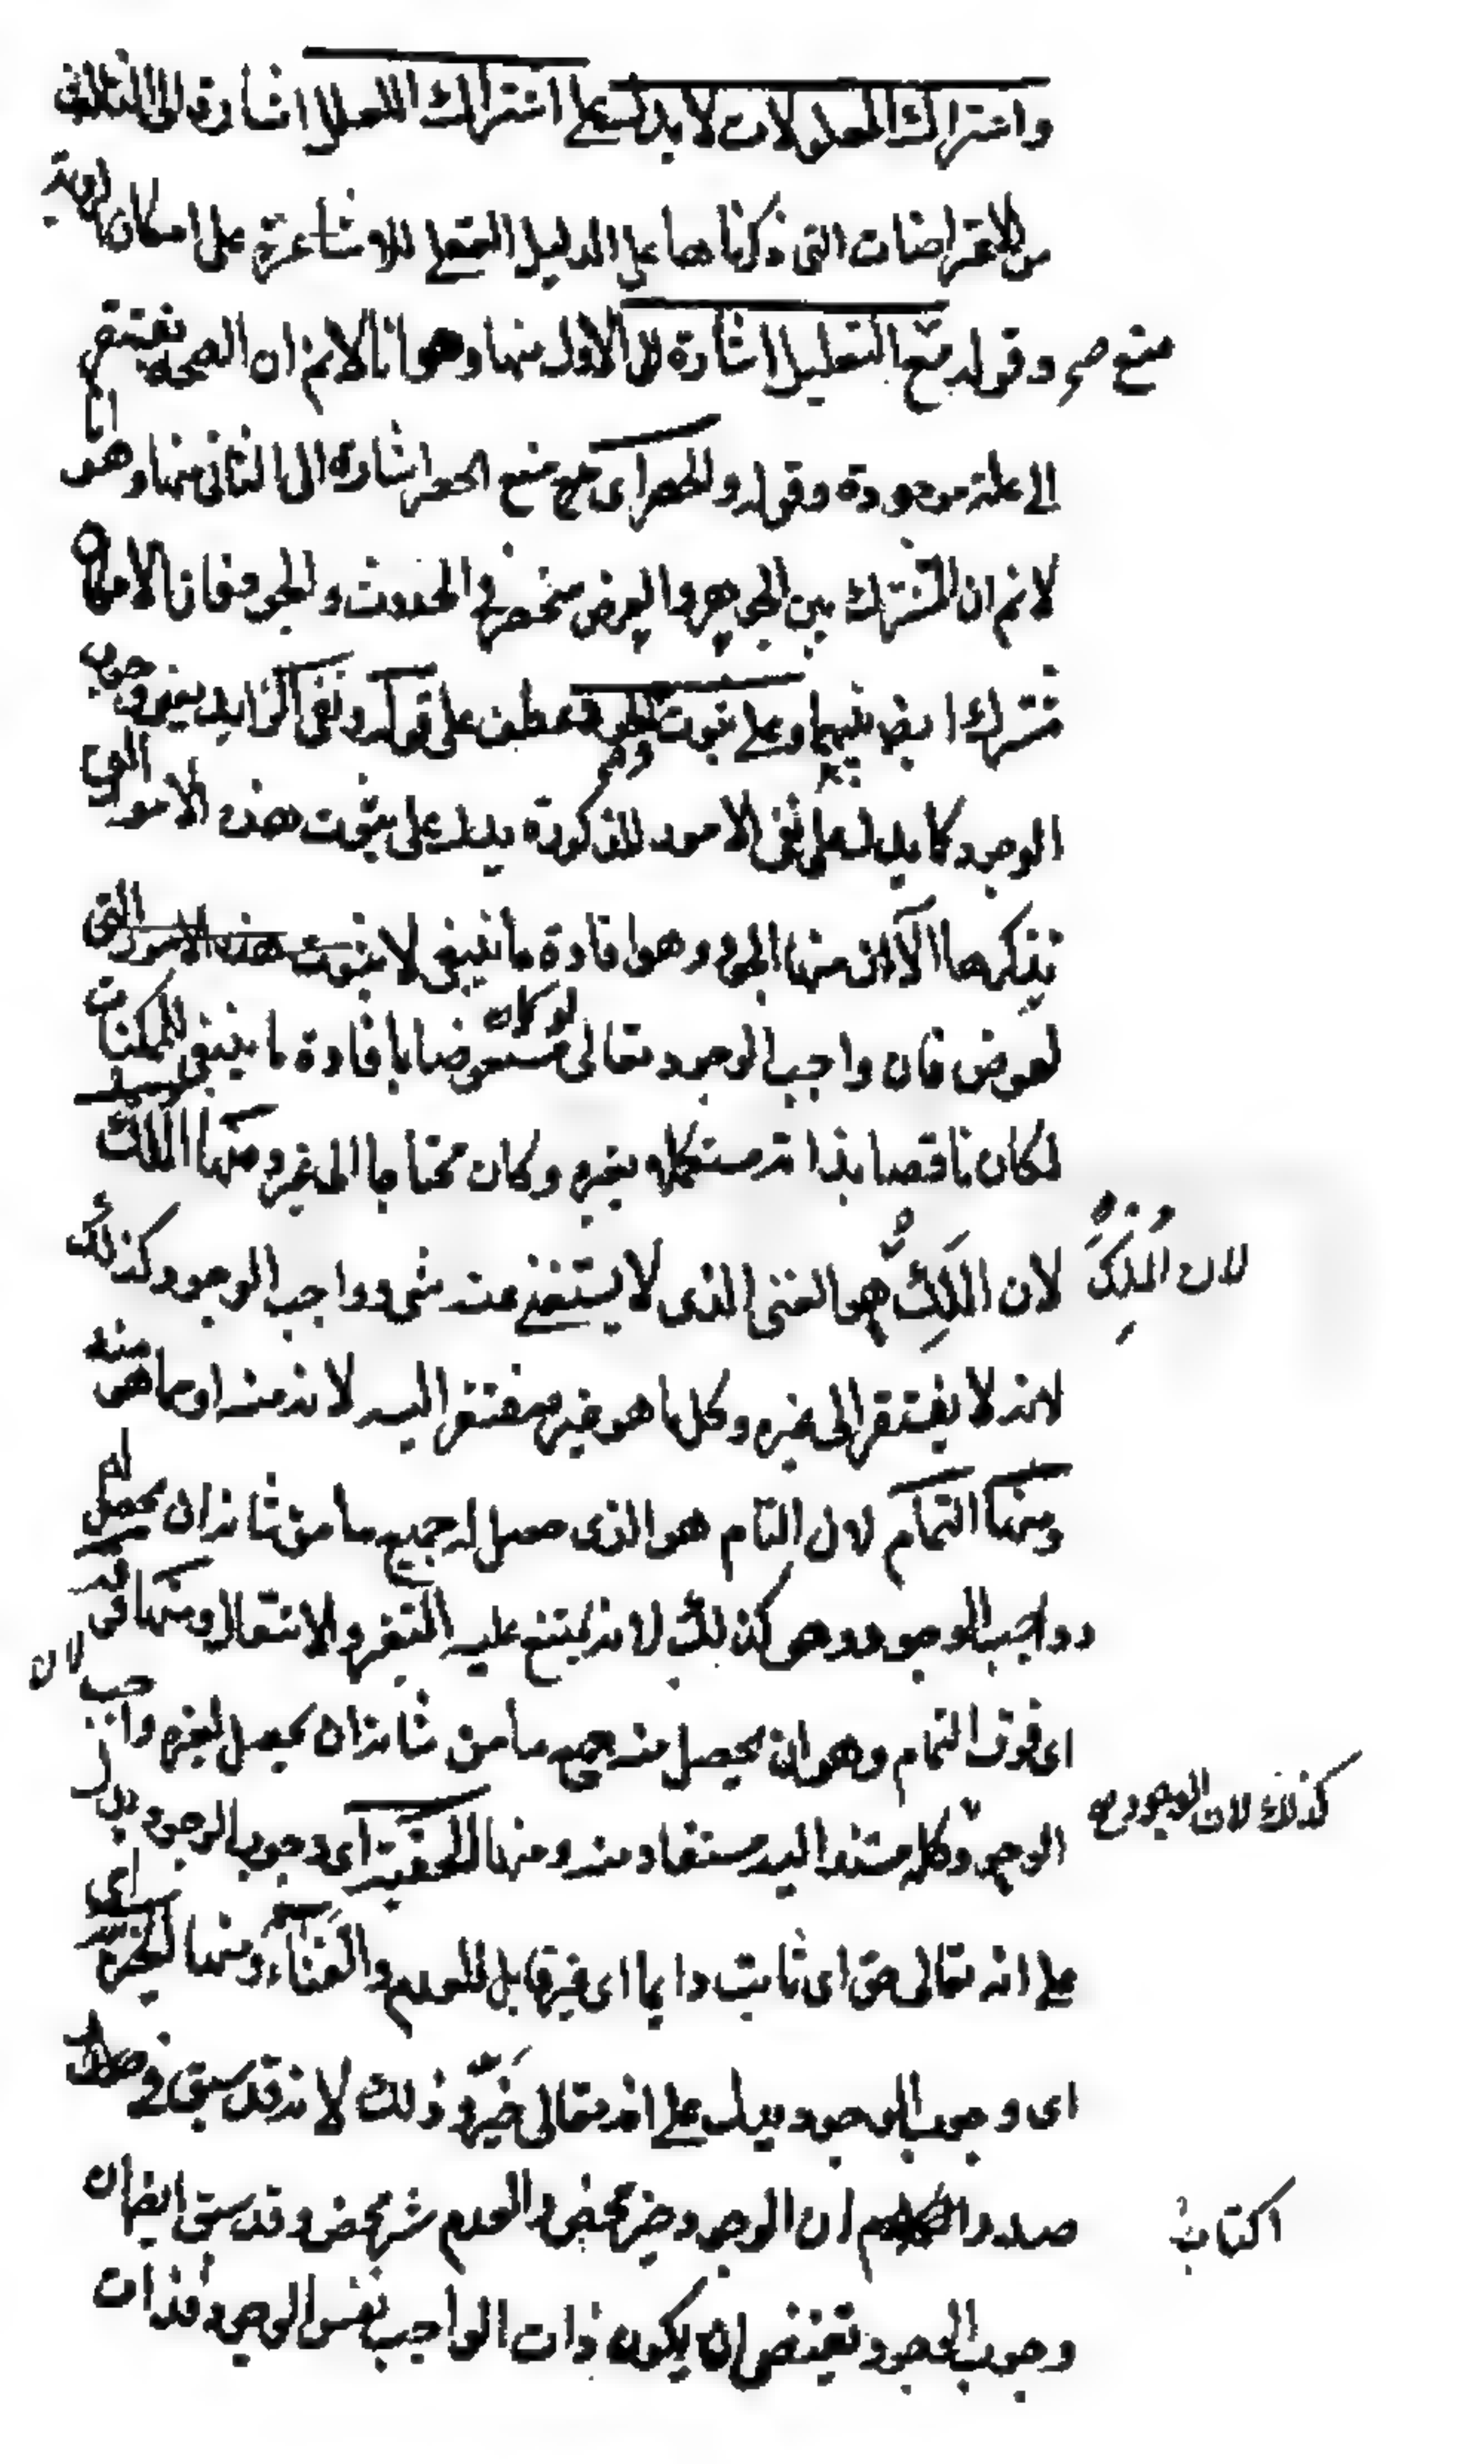 واشتراك المعلولات لا يدل على اشتراك العلل اشارة الى الثالث
من الاعتراضات التى ذكرناها على الدليل العقلى للاشاعرة على امكان الرؤية
منع صح وقوله مع التعليل اشارة الى الاول منها وهو انا لانم ان الصحة تفتقر
الى علة موجودة وقوله والحصر اى مع منع الحصر اشارة الى الثانى منها وهو انا
لانم ان المشترك بين الجوهر والعرض منحصر فى الحدوث والوجود فان الامكان
مشترك ايض فيهما وعلى ثبوت الجود عطف على قوله ونفى الزايد يعنى وجوب
الوجود كما يدل على نفى الامور المذكورة يدل على ثبوت هذه الامور التى
نذكرها الآن منها الجود وهو افادة ما ينبغى لا بثبوت هذه الامور التى
لعوض فان واجب الوجود تعالى لو كان مستعوضا بافادة ما ينبغى للممكنات
لكان ناقصا بذاته مستكملا بغيره وكان محتاجا الى الغير ومنها الملك
لان المُلِكَ لان المَلِكَ هو الغنى الذى لا يستغنى عنه شىء وواجب الوجود كذلك
لانه لا يفتقر الى غيره وكل ما هو غيره مفتقر اليه لانه منه او مما هو منه
ومنها التمام لان التام هو الذى حصل له جميع ما من شانه ان يحصل له
وواجب الوجود وهو كذلك لانه يمتنع عليه التغير والانتقال ومنها فوقه
اى فوق التمام وهو ان يحصل منه جميع ما من شانه ان يحصل لغيره وواجب لان
كذلك لان الوجود صح الوجود وكل مستند اليه مستفاد منه ومنها الحقية اى وجوب الوجود يدل
على انه تعالى حق اى ثابت دايما اى غير قابل للعدم والفناء ومنها الخيرية اى
اى وجوب الوجود يدل على انه تعالى خير وذلك لانه قد سبق فى
اكتاب صدر ان الوجود خير محض والعدم شر محض وقد سبق ايضا ان
وجوب الوجود يقتضى ان يكون ذات الواجب نفس الوجود فذات